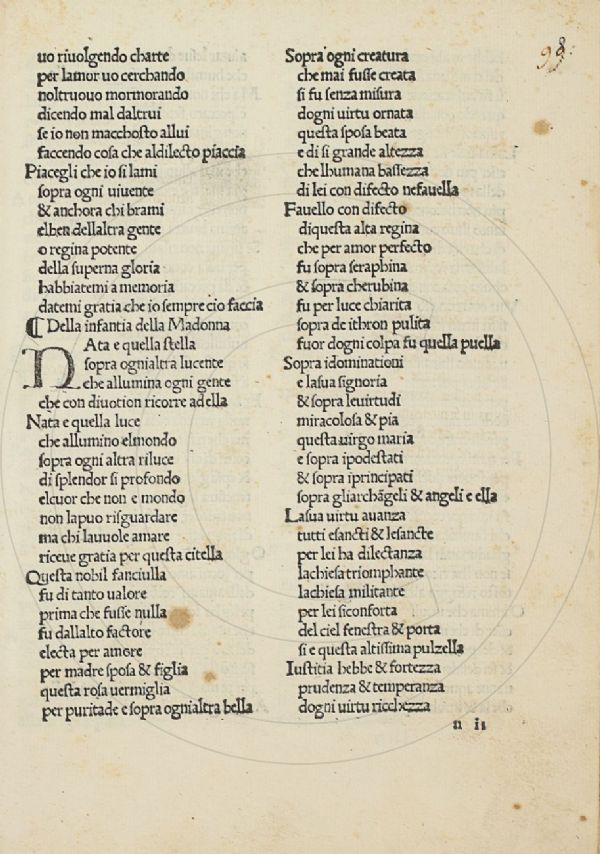 98
uo riuolgendo charte
per lamor uo cerchando
noltruouo mormorando
dicendo mal daltrui
se io non macchosto allui
faccendo cosa che aldilecto piaccia
Piacegli che io si lami
sopra ogni uiuente
& anchora chi brami
elben dellaltra gente
o regina potente
della superna gloria
habbiatemi a memoria
datemi gratia che io sempre cio faccia
¶ Della infantia della Madonna
NAta e quella stella
sopra ognialtra lucente
che allumina ogni gente
che con diuotion ricorre ad ella
Nata e quella luce
che allumino elmondo
sopra ogni altra riluce
di splendor si profondo
elcuor che non e mondo
non lapuo risguardare
ma chi lauuole amare
riceue gratia per questa citella
Questa nobil fanciulla
fu di tanto ualore
prima che fusse nulla
fu dallalto factore
electa per amore
per madre sposa & figlia
questa rosa uermiglia
per puritade e sopra ognialtra bella
Sopra ogni creatura
che mai fusse creata
si fu senza misura
dogni uirtu ornata
questa sposa beata
e di si grande altezza
che lhumana bassezza
di lei con difecto nefauella
Fauello con difecto
diquesta alta regina
che per amor perfecto
fu sopra seraphina
& sopra cherubina
fu per luce chiarita
sopra de ithron pulita
fuor dogni colpa fu quella puella
Sopra idominationi
e lasua signoria
& sopra leuirtudi
miracolosa & pia
questa uirgo maria
e sopra ipodestati
& sopra iprincipati
sopra gliarchāgeli & angeli e ella
Lasua uirtu auanza
tutti esancti & lesancte
per lei ha dilectanza
lachiesa triomphante
lachiesa militante
per lei siconforta
del ciel fenestra & porta
si e questa altissima pulzella
Iustitia hebbe & fortezza
prudenza & temperanza
dogni uirtu ricchezza
n ii